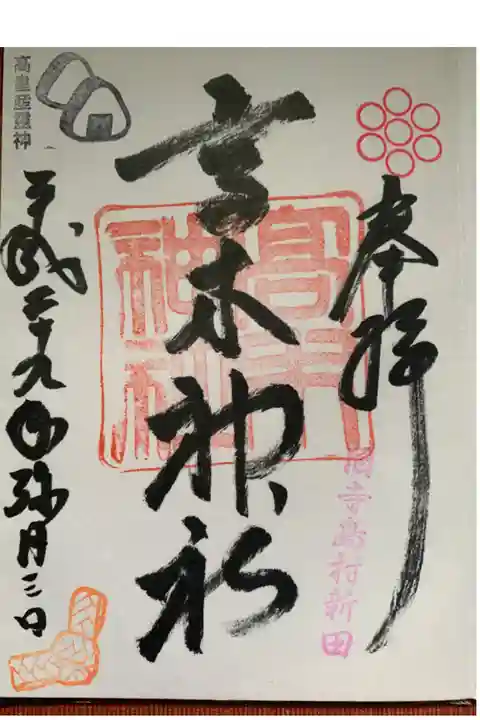 奉拝
寺島村新田
高木神社
高木神社
高皇産靈神
平成二十九年弥月三日